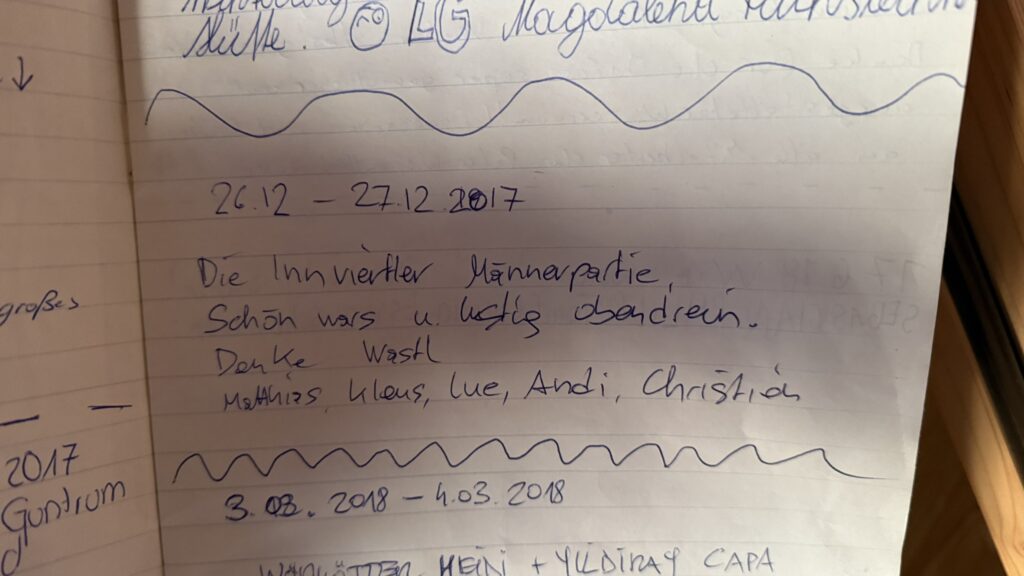 Hütte. LG Magdalena
26.12 – 27.12.2017
Die Innviertler Männerpartie,
Schön wars u. lustig obendrein.
Danke Wastl
Matthias, Klaus, Lue, Andi, Christian
3.03. 2018 – 4.03.2018
HEIN + YILDIRAY CAPA
großes
2017
Guntram